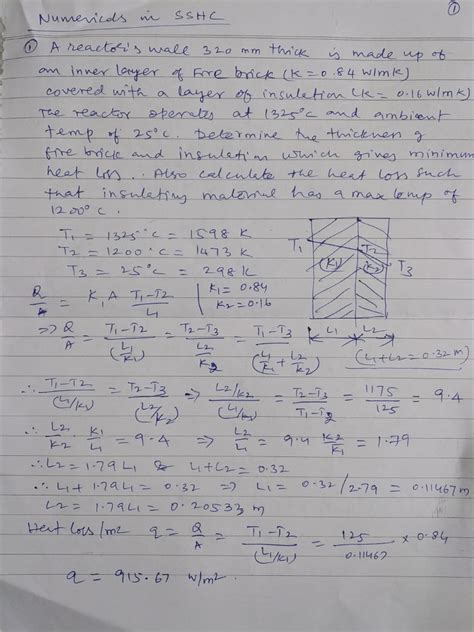 Numericals in SSHC
①
① A reactor's wall 320 mm thick is made up of
an inner layer of Fire brick (K = 0.84 W/mK)
covered with a layer of insulation (K = 0.16 W/mK)
The reactor operates at 1325°C and ambient
temp of 25°C. Determine the thickness of
fire brick and insulation which gives minimum
heat loss. Also calculate the heat loss such
that insulating material has a max temp of
1200°C.
T1 = 1325°C = 1598 K
T2 = 1200°C = 1473 K
T3 = 25°C = 298 K
T1 (K1) T2 (K2) T3
Q/A = K1 A (T1-T2)/L1 | K1 = 0.84 K2 = 0.16
⇒ Q/A = (T1-T2)/(L1/K1) = (T2-T3)/(L2/K2) = (T1-T3)/(L1/K1 + L2/K2)
L1 L2
(L1+L2 = 0.32m)
∴ (T1-T2)/(L1/K1) = (T2-T3)/(L2/K2) ⇒ (L2/K2)/(L1/K1) = (T2-T3)/(T1-T2) = 1175/125 = 9.4
∴ L2/K2 · K1/L1 = 9.4 ⇒ L2/L1 = 9.4 K2/K1 = 1.79
∴ L2 = 1.79 L1 & L1+L2 = 0.32
∴ L1 + 1.79 L1 = 0.32 ⇒ L1 = 0.32/2.79 = 0.11467 m
L2 = 1.79 L1 = 0.20533 m
Heat loss/m2 q = Q/A = (T1-T2)/(L1/K1) = 125/0.11467 × 0.84
q = 915.67 W/m².